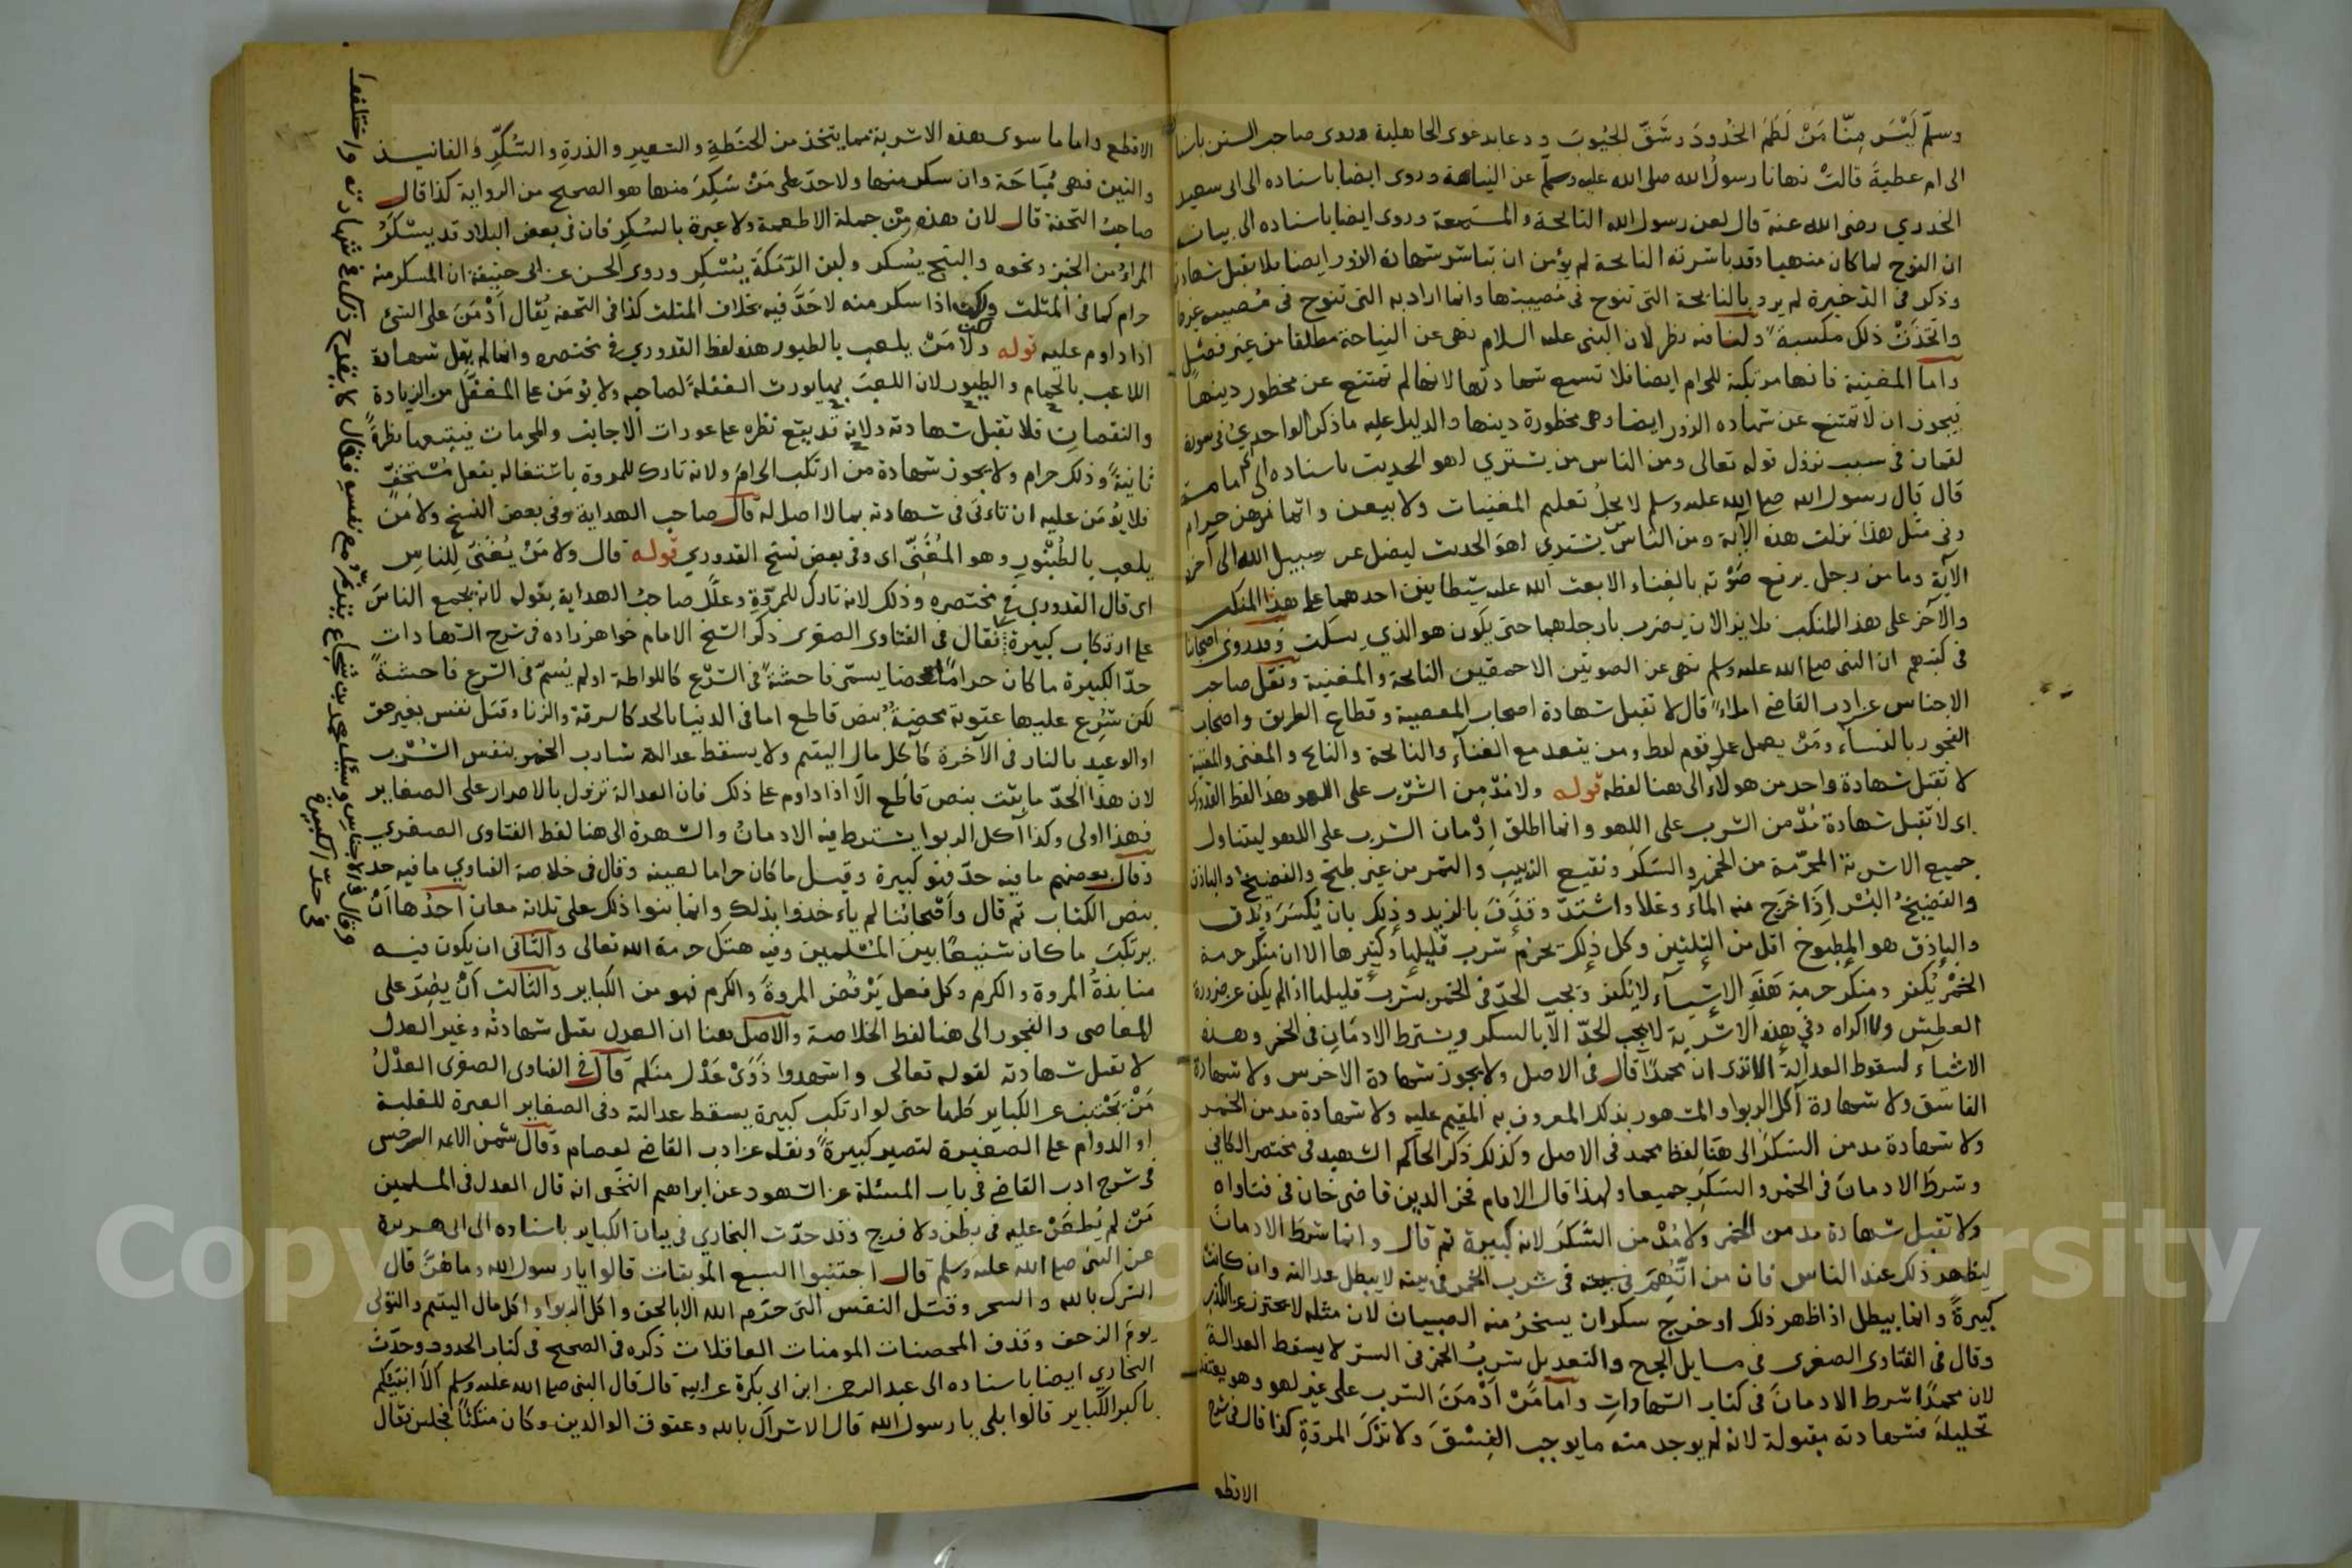 وسلم لَيْسَ مِنَّا مَنْ لَطَمَ الخُدودَ وشَقَّ الجُيُوبَ ودعا بدعوى الجاهلية وروى صاحب السنن باسناده
الى ام عطية قالتْ نهانا رسولُ الله صلى الله عليه وسلم عن النياحة وروى ايضا باسناده الى ابى سعيد
الخدري رضى الله عنه قال لعن رسول الله النائحة والمستمعة وروى ايضا باسناده الى بيان
ان النوح لما كان منهيا وقد باشرته النائحة لم يؤمن ان تباشر شهادة الزور ايضا فلا يقبل شهادتها
وذكر فى الذخيرة لم يرد بالنائحة التى تنوح فى مُصيبتها وانما اراد به التى تنوح فى مُصيبة غيرها
واتَّخَذَتْ ذلك مكسبةً ولنا فيه نظر لان النبى عليه السلام نهى عن النياحة مطلقا من غير فصل
واما المغنية فانها مرتكبة للحرام ايضا فلا تسمع شهادتها لانها لم تمتنع عن محظور دينها
فيجوز ان لا تمتنع عن شهاده الزور ايضا وهى محظورة دينها والدليل عليه ما ذكر الواحدي فى سورة
لقمان فى سبب نزول قوله تعالى ومن الناس من يشتري لهو الحديث باسناده الى ابى امامة
قال قال رسول الله صلى الله عليه وسلم لا يحلُ تعليم المغنيات ولا بيعهن واثمانهن حرام
وفى مثل هذا نزلت هذه الآية ومن الناس من يشتري لهو الحديث ليضل عن سبيل الله الى آخر
الآية وما من رجل يرفع صَوْته بالغناء الا بعث الله عليه شيطانين احدهما على هذا المنكب
والآخر على هذا المنكب فلا يزالان يضرب بارجلهما حتى يكون هو الذي يسكت وقد روى اصحابنا
فى كتبهم ان النبى صلى الله عليه وسلم نهى عن الصوتين الاحمقين النائحة والمغنية ونقل صاحب
الاجناس عن ادب القاضى املاءً قال لا تقبل شهادة اصحاب المعصية وقطاع الطريق واصحاب
الفجور بالنساء ومَنْ يعمل عمل قوم لوط ومن يقعد مع الغناء والنائحة والنائح والمغنى والمغنية
لا تقبل شهادة واحد من هولاء الى هنا لفظه قوله ولا مُدْمن الشرب على اللهو هذا لفظ القدورى
اى لا تقبل شهادة مُدْمن الشرب على اللهو وانما اطلق ادْمان الشرب على اللهو ليتناول
جميع الاشربة المحرّمة من الخمر والسَكَر ونقيع الزبيب والتمر من غير طبخ والفضيخ والباذق
والفضيخُ البُسْر اِذَا خَرَج منه الماء وغلا واشتدّ وقذَفَ بالزبد وذلك بان يُكْسَرَ ويدق
والباذق هو المطبوخ اقل من الثلثين وكل ذلك يحْرُم شرب قليلها وكثيرها الا ان منكر حرمة
الخمْر يُكفر ومنكر حرمة هَذه الاشياء لا يُكفر ويجب الحدّ فى الخمر بشرب قليلها اذا لم يكن عن ضرورة
العطش والاكراه وفى هذه الاشربة لا يجب الحدّ الّا بالسكر ويشترط الادمَان فى الخمر وهذه
الاشياء لسقوط العدالة الا ترى ان محمدًا قال فى الاصل ولا يجوز شهادة الاخرس ولا شهادة
الفاسق ولا شهادة آكل الربوا والمشهور بذلك المعروف به المقيم عليه ولا شهادة مدمن الخمر
ولا شهادة مدمن السَكَرْ الى هنا لفظ محمد فى الاصل وكذلك ذكر الحاكم الشهيد فى مختصر الكافي
وشرط الادمانَ فى الخمر والسَكَرِ جميعا ولهذا قال الامام فخر الدين قاضى خان فى فتاواه
ولا تقبل شهادة مدمن الخمر ولا مُدْمن السَّكَر لانه كبيرة ثم قال وانما شرط الادمان
ليظهر ذلك عند الناس فان من اتّهِمَ فى شرب الخمر فى بيته لا يبطل عدالته وان كانت
كبيرةً وانما يبطل اذا ظهر ذلك او خرج سكران يسخرُ منه الصبيان لان مثله لا يحترز عن الكذب
وقال فى الفتاوى الصغرى فى مسايل الجرح والتعديل شربُ الخمر فى السرّ لا يسقط العدالة
لان محمدًا شرط الادمانَ فى كتاب الشهاداتِ واما مَنْ اَدْمَنَ الشرب على غير لهو وهو يعتقد
تحليلَه فشهادته مقبولة لانه لم يوجد منه ما يوجب الفِسْقَ ولا تَرْكَ المروّةِ كذا قال فى شرح
الاقطع
الاقطع واما ما سوى هذه الاشربة مما يتخذ من الحنطةِ والشعيرِ والذرةِ والسُّكَّرِ والفانيد
والتين فهى مُبَاحَة وان سكر منها ولا حدّ على مَنْ سَكِرَ منها هو الصحيح من الرواية كذا قال
صاحبُ التحفة قال لان هذه مِنْ جملة الاطعمة ولا عبرة بالسُكرِ فان فى بعض البلاد قد يسْكَرُ
المرؤ من الخبز ونحوه والبنج يُسكر ولبن الرَّمَكَة يُسْكِر وروى الحسن عن ابى حنيفة ان المسكر منه
حرام كما فى المثلث ولكن اذا سكر منه لا حَدَّ فيه بخلاف المثلث كذا فى التحفة يُقال اَدْمَنَ على الشئ
اذا داوم عليه قوله ولا مَنْ يلعب بالطيور هذه لفظ القدوري فى مختصره وانما لم يقبل شهادة
اللاعب بالحمام والطيور لان اللعبَ بها يورث الغفلةَ لصاحبه ولا يؤمَن على المغفل من الزيادة
والنقصان فلا تقبل شهادته ولانه قد يقع نظره على عورات الاجانب والمحرمات فيتبعها نظرةً
ثانيةً وذلك حرام ولا يجوز شهادة من ارتكب الحرامَ ولانه تارك للمروة باشتغاله بفعل مُسْتخفّ
فلا يُؤمَن عليه ان تاءتى فى شهادته بما لا اصل له قال صاحب الهداية وفى بعض النسخ ولا مَن
يلعب بالطُّنْبُور وهو المُغَنّى اى وفى بعض نسخ القدوري قوله قال ولا مَنْ يُغَنّى لِلناسِ
اى قال القدورى فى مختصره وذلك لانه تارك للمروّةِ وعلّل صاحبُ الهداية بقوله لانه يجمع الناسَ
على ارتكاب كبيرة فقال فى الفتاوى الصغرى ذكر الشيخ الامام خواهر زاده فى شرح الشهادات
حدّ الكبيرة ما كان حرامًا محضا يسمّى فاحشةً فى الشرْع كاللواطة او لم يُسَمّ فى الشرع فاحشةً
لكن شُرِع عليها عقوبة محضةٌ بنص قاطع اما فى الدنيا بالحد كالسرقة والزنا وقتل نفس بغير حق
او الوعيد بالنار فى الآخرة كآكل مال اليتيم ولا يسقط عدالة شارب الخمر بنفس الشُرْب
لان هذا الحدّ ما يثبت بنص قَاطع الّا اذا داوم على ذلك فان العدالة تزول بالاصرار على الصغاير
فهذا اولى وكذا آكل الربوا يشترط فيه الادمانُ والشهرة الى هنا لفظ الفتاوى الصغري
وقال بعضهم ما فيه حدّ فهو كبيرة وقيل ما كان حراما لعينه وقال فى خلاصة الفتاوي ما فيه حد
بنص الكتاب ثم قال واَصْحابُنا لم ياءخذوا بذلك وانما بنوا ذلك على ثلاثه معان اَحدُها اَنْ
يرتكبَ ما كان شنيعًا بين المُسْلمين وفيه هتكُ حرمة الله تعالى والثانى ان يكون فيه
منابذةُ المروة والكرم وكل فعل يَرْفُض المروةَ والكرم فهو من الكباير والثالث اَنْ يصِرّ على
المعاصى والفجور الى هنا لفظ الخلاصة والاصل هنا ان العدل يقبل شهادتُه وغير العدل
لا تقبل شهادته لقوله تعالى واشهدوا ذَوَىْ عَدْل منكم قال فى الفتاوى الصغرى العدْلُ
مَنْ يَجْتنب عن الكباير كلها حتى لو ارتكب كبيرة يسقط عدالته وفى الصغاير العبرة للغلبة
او الدوام على الصغيرة لتصير كبيرةً ونقله عن ادب القاضى لعصام وقال شمس الايمه السرخسى
فى شرح ادب القاضى فى باب المسئلة عن الشهود عن ابراهيم النخعى انه قال العدل فى المسلمين
مَنْ لم يُطعَنْ عليه فى بطْن ولا فرج وقد حدّث البخاري فى بيان الكباير باسناده الى ابى هريرة
عن النبى صلى الله عليه وسلم قال اجتنبوا السبع الموبقات قالوا يا رسول الله وما هُنَّ قال
الشرك بالله والسحر وقتل النفس التى حرّم الله الا بالحق واكل الربوا واكل مال اليتيم والتولى
يومَ الزحف وقذف المحصنات المومنات الغافلات ذكره فى الصحيح فى كتاب الحدود وحدّث
البخاري ايضا باسناده الى عبد الرحمن ابن ابى بكرة عن ابيه قال قال النبى صلى الله عليه وسلم اَلَا انبّئكم
باكبر الكباير قالوا بلى يا رسول الله قال الاشراك بالله وعقوق الوالدين وكان متكئًا فجلس فقال
وقال فى الاجناس وسئل محمد بن شجاع عن تزكّر مع نفسه فقال لا يقدح ذلك فى شهادته واختلفوا
فى حدّ الكبيرة